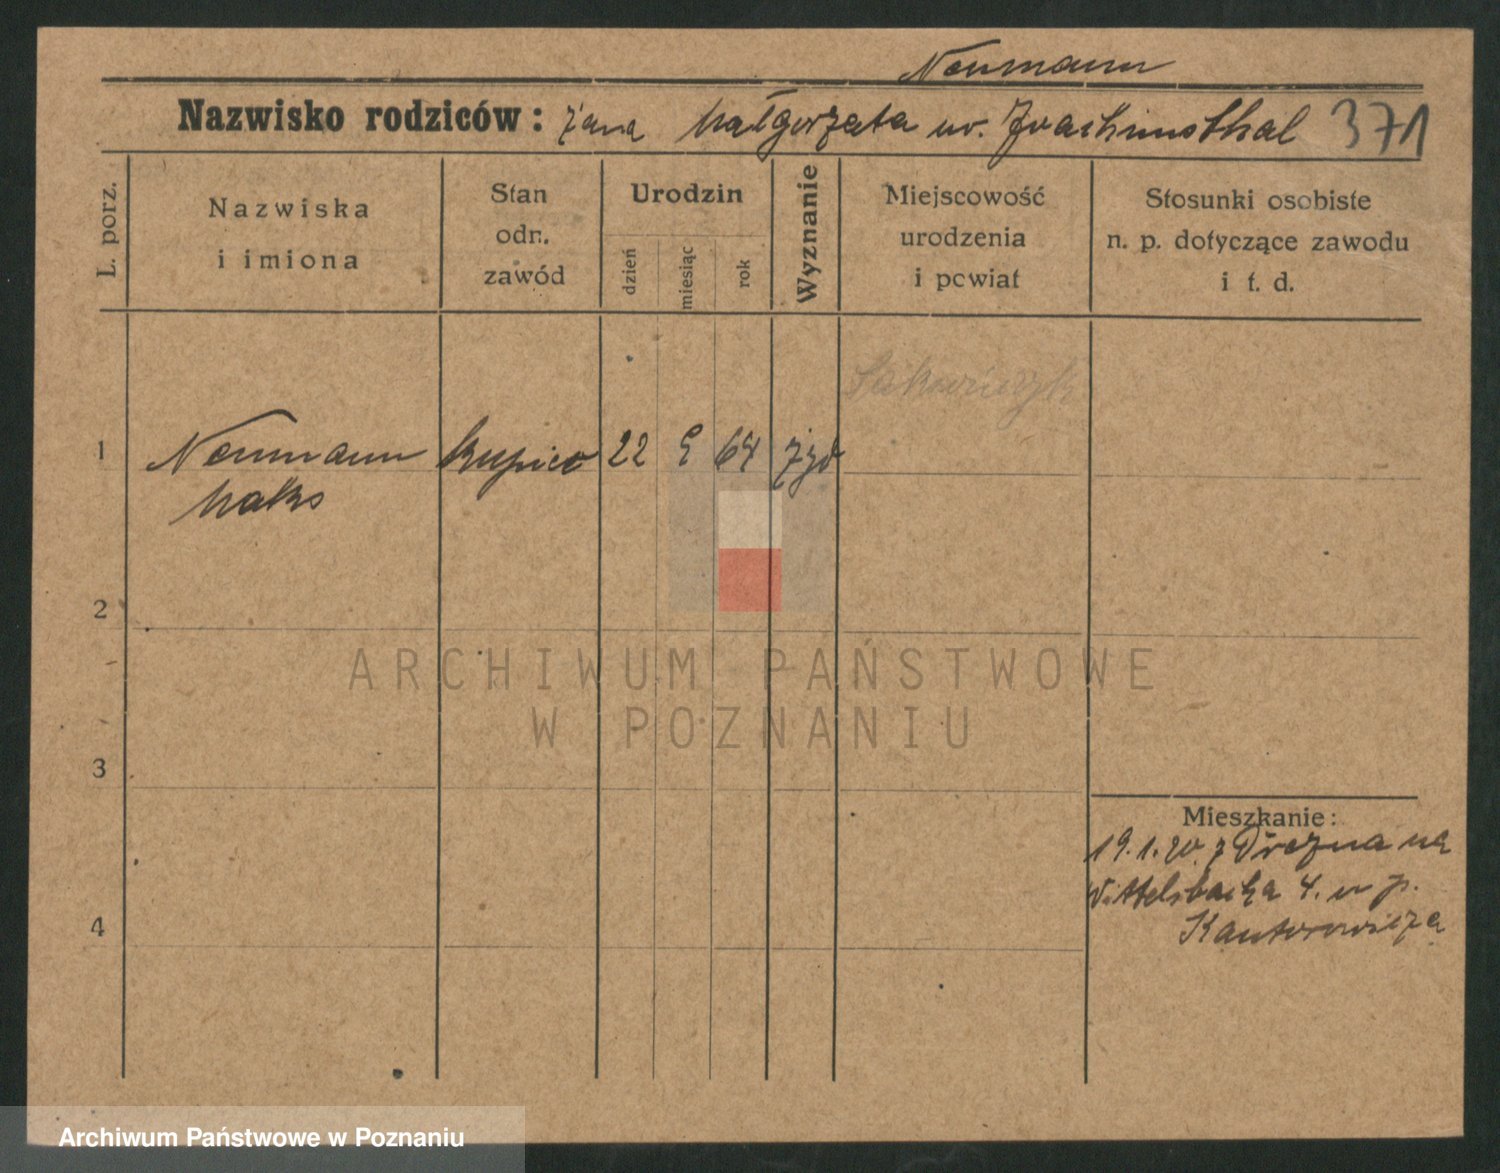 Neumann
Nazwisko rodziców: żona Małgorzata ur. Joachimsthal 371
L. porz.
Nazwiska
i imiona
Stan
odn.
zawód
Urodzin
dzień
miesiąc
rok
Wyznanie
Miejscowość
urodzenia
i powiat
Stosunki osobiste
n. p. dotyczące zawodu
i t. d.
1
Neumann
Maks
kupiec
22
64
żyd
2
3
4
Mieszkanie:
19.1.20 z Drezna na
Wittelsbacha 4. u p.
Kantorowicza
ARCHIWUM PAŃSTWOWE
W POZNANIU
Archiwum Państwowe w Poznaniu